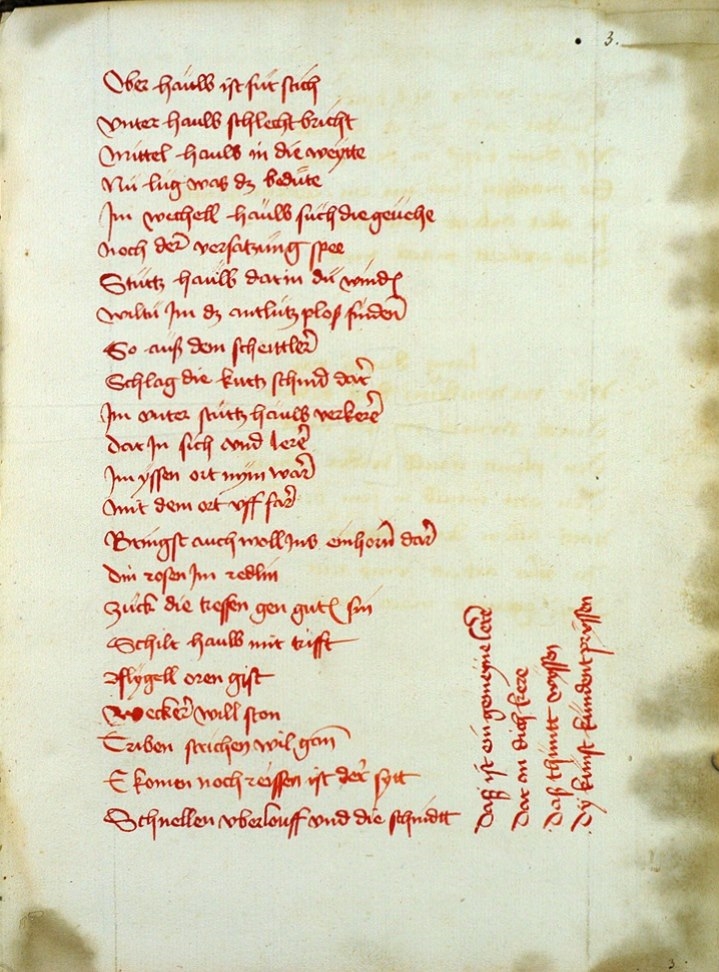 3.
Ober hauw ist fur stich
vnter hauw schlecht bricht
Mittel hauw in die weytte
Nu lug was dz bedute
Im wechell hauw such die geuehe
noch der versatzung spee
Sturtz hauw darin du wind
wiltu Im dz antlutz ploß finden
So auß dem scheittler
Schlag die kurtz schnid dar
Im vnter sturtz hauw verkere
dar In sich vnd lere
Im yssen ort nym war
mit dem ort vff far
Bringst auch woll Ins einhorn dar
Din rosen Im redlin
Zuck die treffen gen gut sin
Schilt hauw mit trifft
Flygell oren gift
Wecker will ston
Eriben strichen wil gan
E komen noch reissen ist der sytt
Schnellen vberlouff vnd die schnidtt
Daß ist ein gemeyne lere
Dar an dich kere
Daß thuntt wyssen
Dy kunst kundent pryssen
3